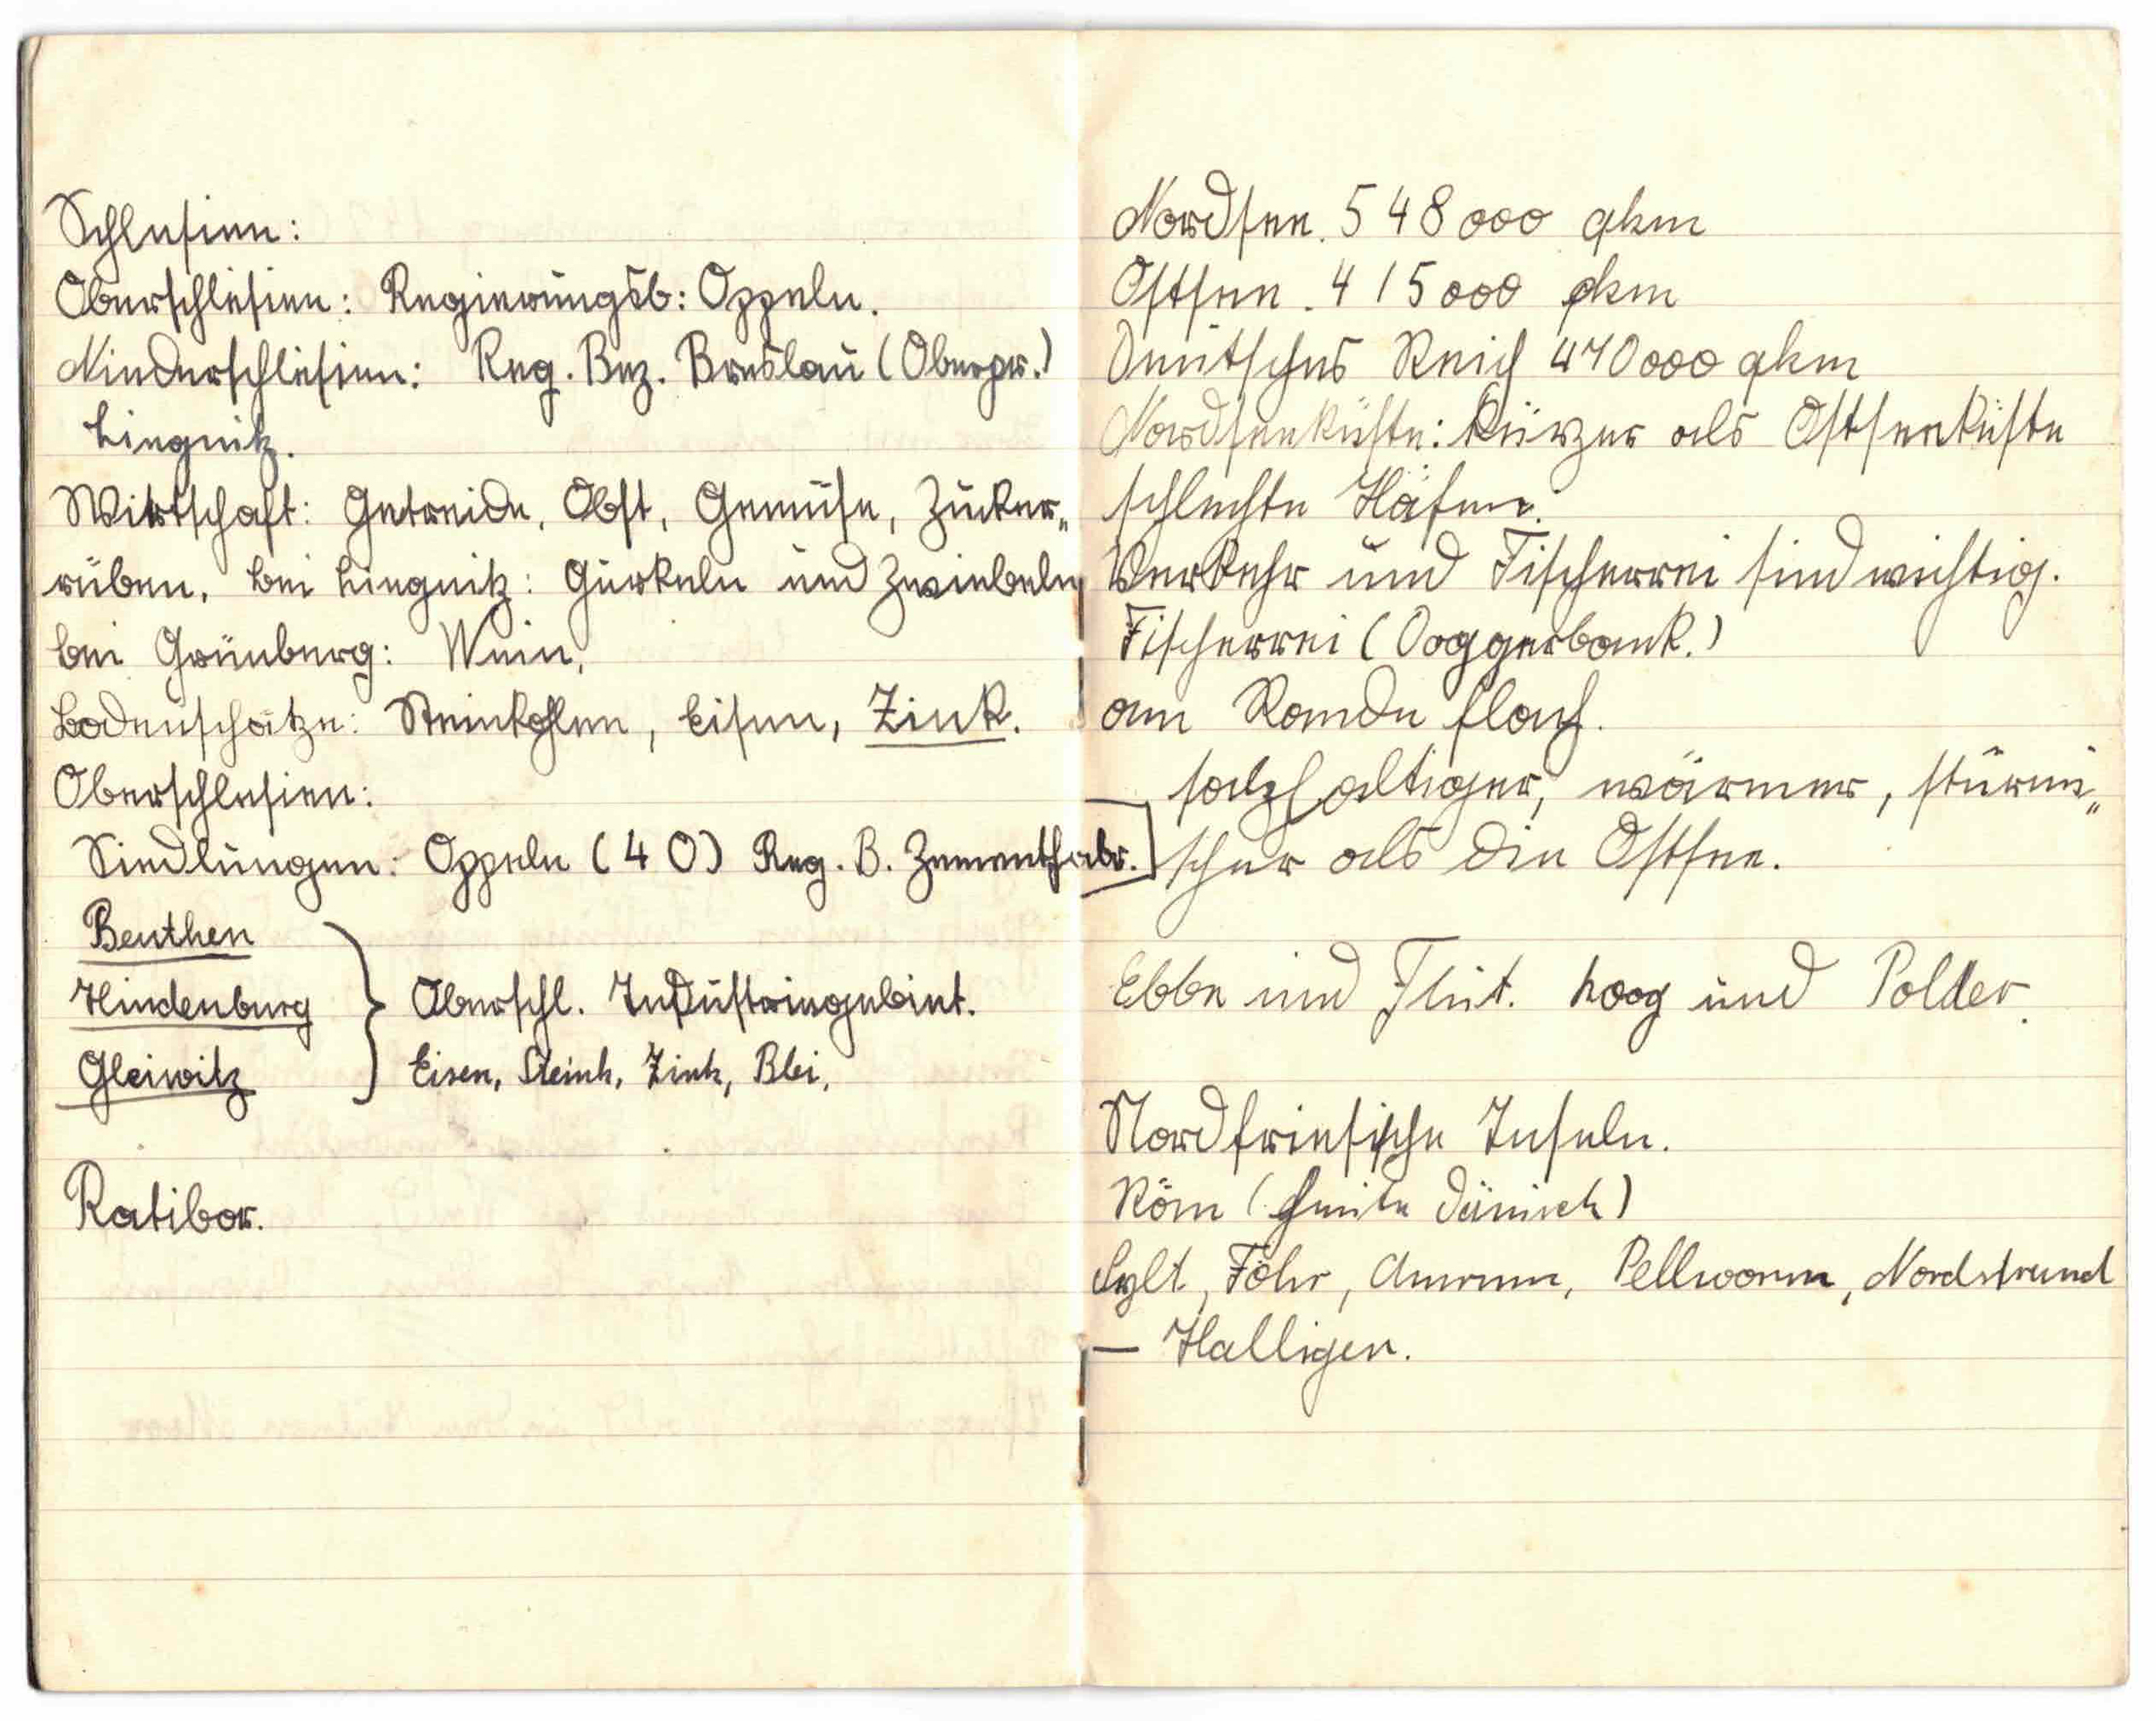 Schlesien:
Oberschlesien: Regierungsb: Oppeln.
Niederschlesien: Reg. Bez. Breslau (Oberpr.)
Liegnitz.
Wirtschaft: Getreide, Obst, Gemüse, Zucker„
rüben, bei Liegnitz: Gurkeln und Zwiebeln
bei Grünberg: Wein,
Bodenschätze: Steinkohlen, Eisen, Zink.
Oberschlesien:
Siedlungen: Oppeln (40) Reg. B. Zementfabr.
Beuthen
Hindenburg
Gleiwitz
Oberschl. Industriegebiet.
Eisen, Steink, Zink, Blei,
Ratibor.
Nordsee. 548000 qkm
Ostsee. 415000 qkm
Deutsches Reich 470000 qkm
Nordseeküste: kürzer als Ostseeküste
schlechte Häfen.
Verkehr und Fischerei sind wichtig.
Fischerei (Doggerbank.)
am Rande flach.
salzhaltiger, wärmer, stürmi„
scher als die Ostsee.
Ebbe und Flut. Koog und Polder.
Nordfriesische Inseln.
Röm (heute dänisch)
Sylt, Föhr, Amrum, Pellworm, Nordstrand
— Halligen.